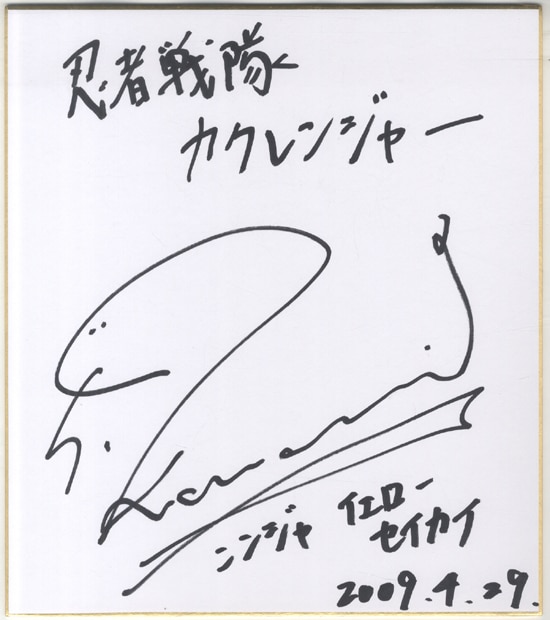 忍者戦隊
カクレンジャー
ニンジャ イエロー
セイカイ
2009.4.29.